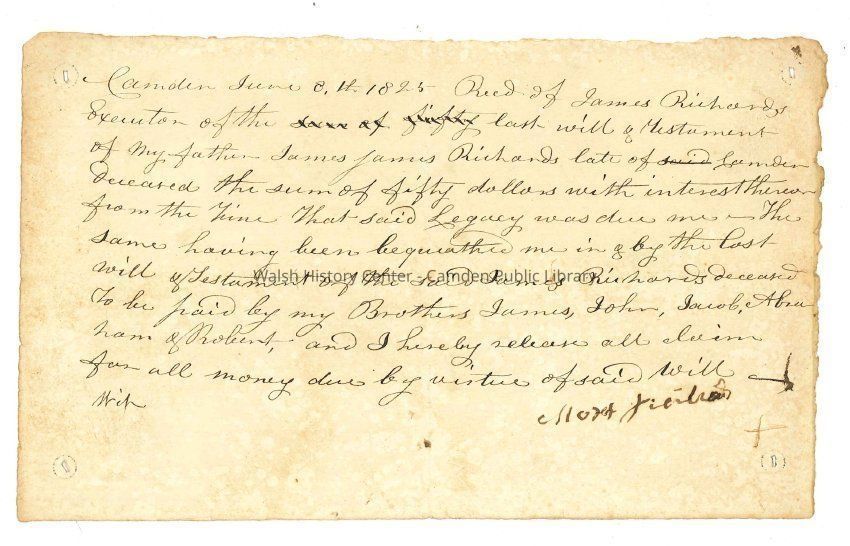 Camden June 8th 1825 Recd of James Richards
Executor of the sum of fifty last will & Testament
of My father James James Richards late of said Camden
deceased the sum of fifty dollars with interest thereon
from the Time That said Legacy was due me - The
same having been bequeathed me in & by the last
will & Testament of the said James Richards deceased
To be paid by my Brothers James, John, Jacob, Abra
ham & Robert, and I hereby release all claim
for all money due by virtue of said Will
Wit
Walsh History Center - Camden Public Library